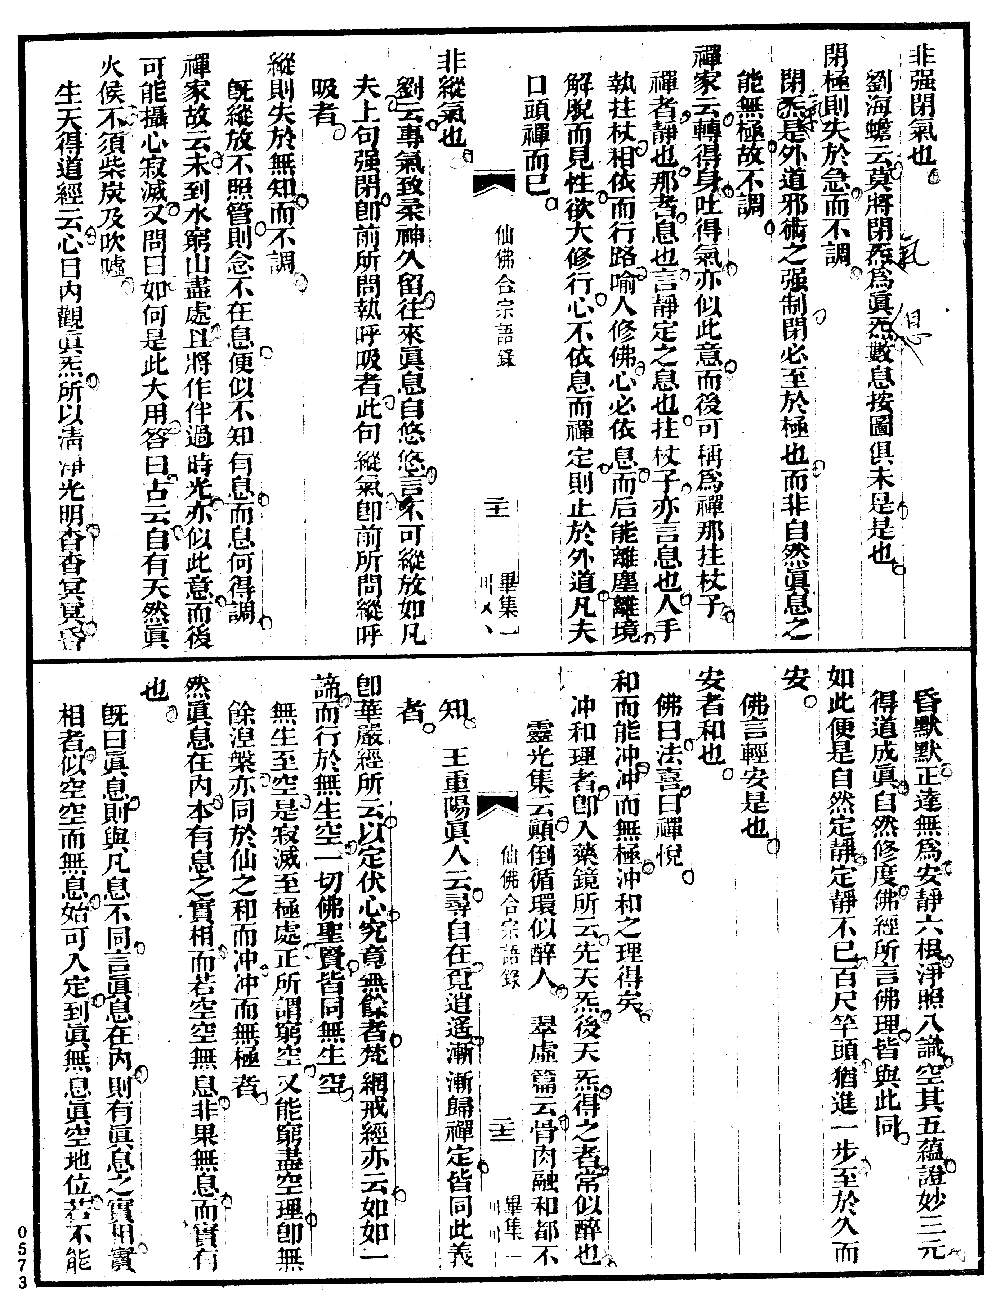 非强閉氣也
劉海蟾云莫將閉炁爲眞炁數息按圖俱未是是也
閉極則失於急而不調
閉炁是外道邪術之强制閉必至於極也而非自然眞息之
能無極故不調
禪家云轉得身吐得氣亦似此意而後可稱爲禪那拄杖子
禪者靜也那者息也言靜定之息也拄杖子亦言息也人手
執拄杖相依而行路喻人修佛心必依息而后能離塵離境
解脫而見性欲大修行心不依息而禪定則止於外道凡夫
口頭禪而已
仙佛合宗語錄
畢集一
非縱氣也
劉云專氣致柔神久留往來眞息自悠悠言不可縱放如凡
夫上句强閉卽前所問執呼吸者此句縱氣卽前所問縱呼
吸者
縱則失於無知而不調
旣縱放不照管則念不在息便似不知有息而息何得調
禪家故云未到水窮山盡處且將作伴過時光亦似此意而後
可能攝心寂滅又問曰如何是此大用答曰古云自有天然眞
火候不須柴炭及吹噓
生天得道經云心目內觀眞炁所以清淨光明杳杳冥冥昏
昏默默正達無爲安靜六根淨照八識空其五蘊證妙三元
得道成眞自然修度佛經所言佛理皆與此同
如此便是自然定靜定靜不已百尺竿頭猶進一步至於久而
安
佛言輕安是也
安者和也
佛曰法喜曰禪悅
和而能冲冲而無極冲和之理得矣
冲和理者卽入藥鏡所云先天炁後天炁得之者常似醉也
靈光集云顚倒循環似醉人　翠虛篇云骨肉融和都不
仙佛合宗語錄
畢集一
知　王重陽眞人云尋自在覓逍遙漸漸歸禪定皆同此義
者
卽華嚴經所云以定伏心究竟無餘者梵網戒經亦云如如一
諦而行於無生空一切佛聖賢皆同無生空
無生至空是寂滅至極處正所謂窮空又能窮盡空理卽無
餘湼槃亦同於仙之和而冲冲而無極者
然眞息在內本有息之實相而若空空無息非果無息而實有
也
旣曰眞息則與凡息不同言眞息在內則有眞息之實相實
相者似空空而無息始可入定到眞無息眞空地位若不能
0573